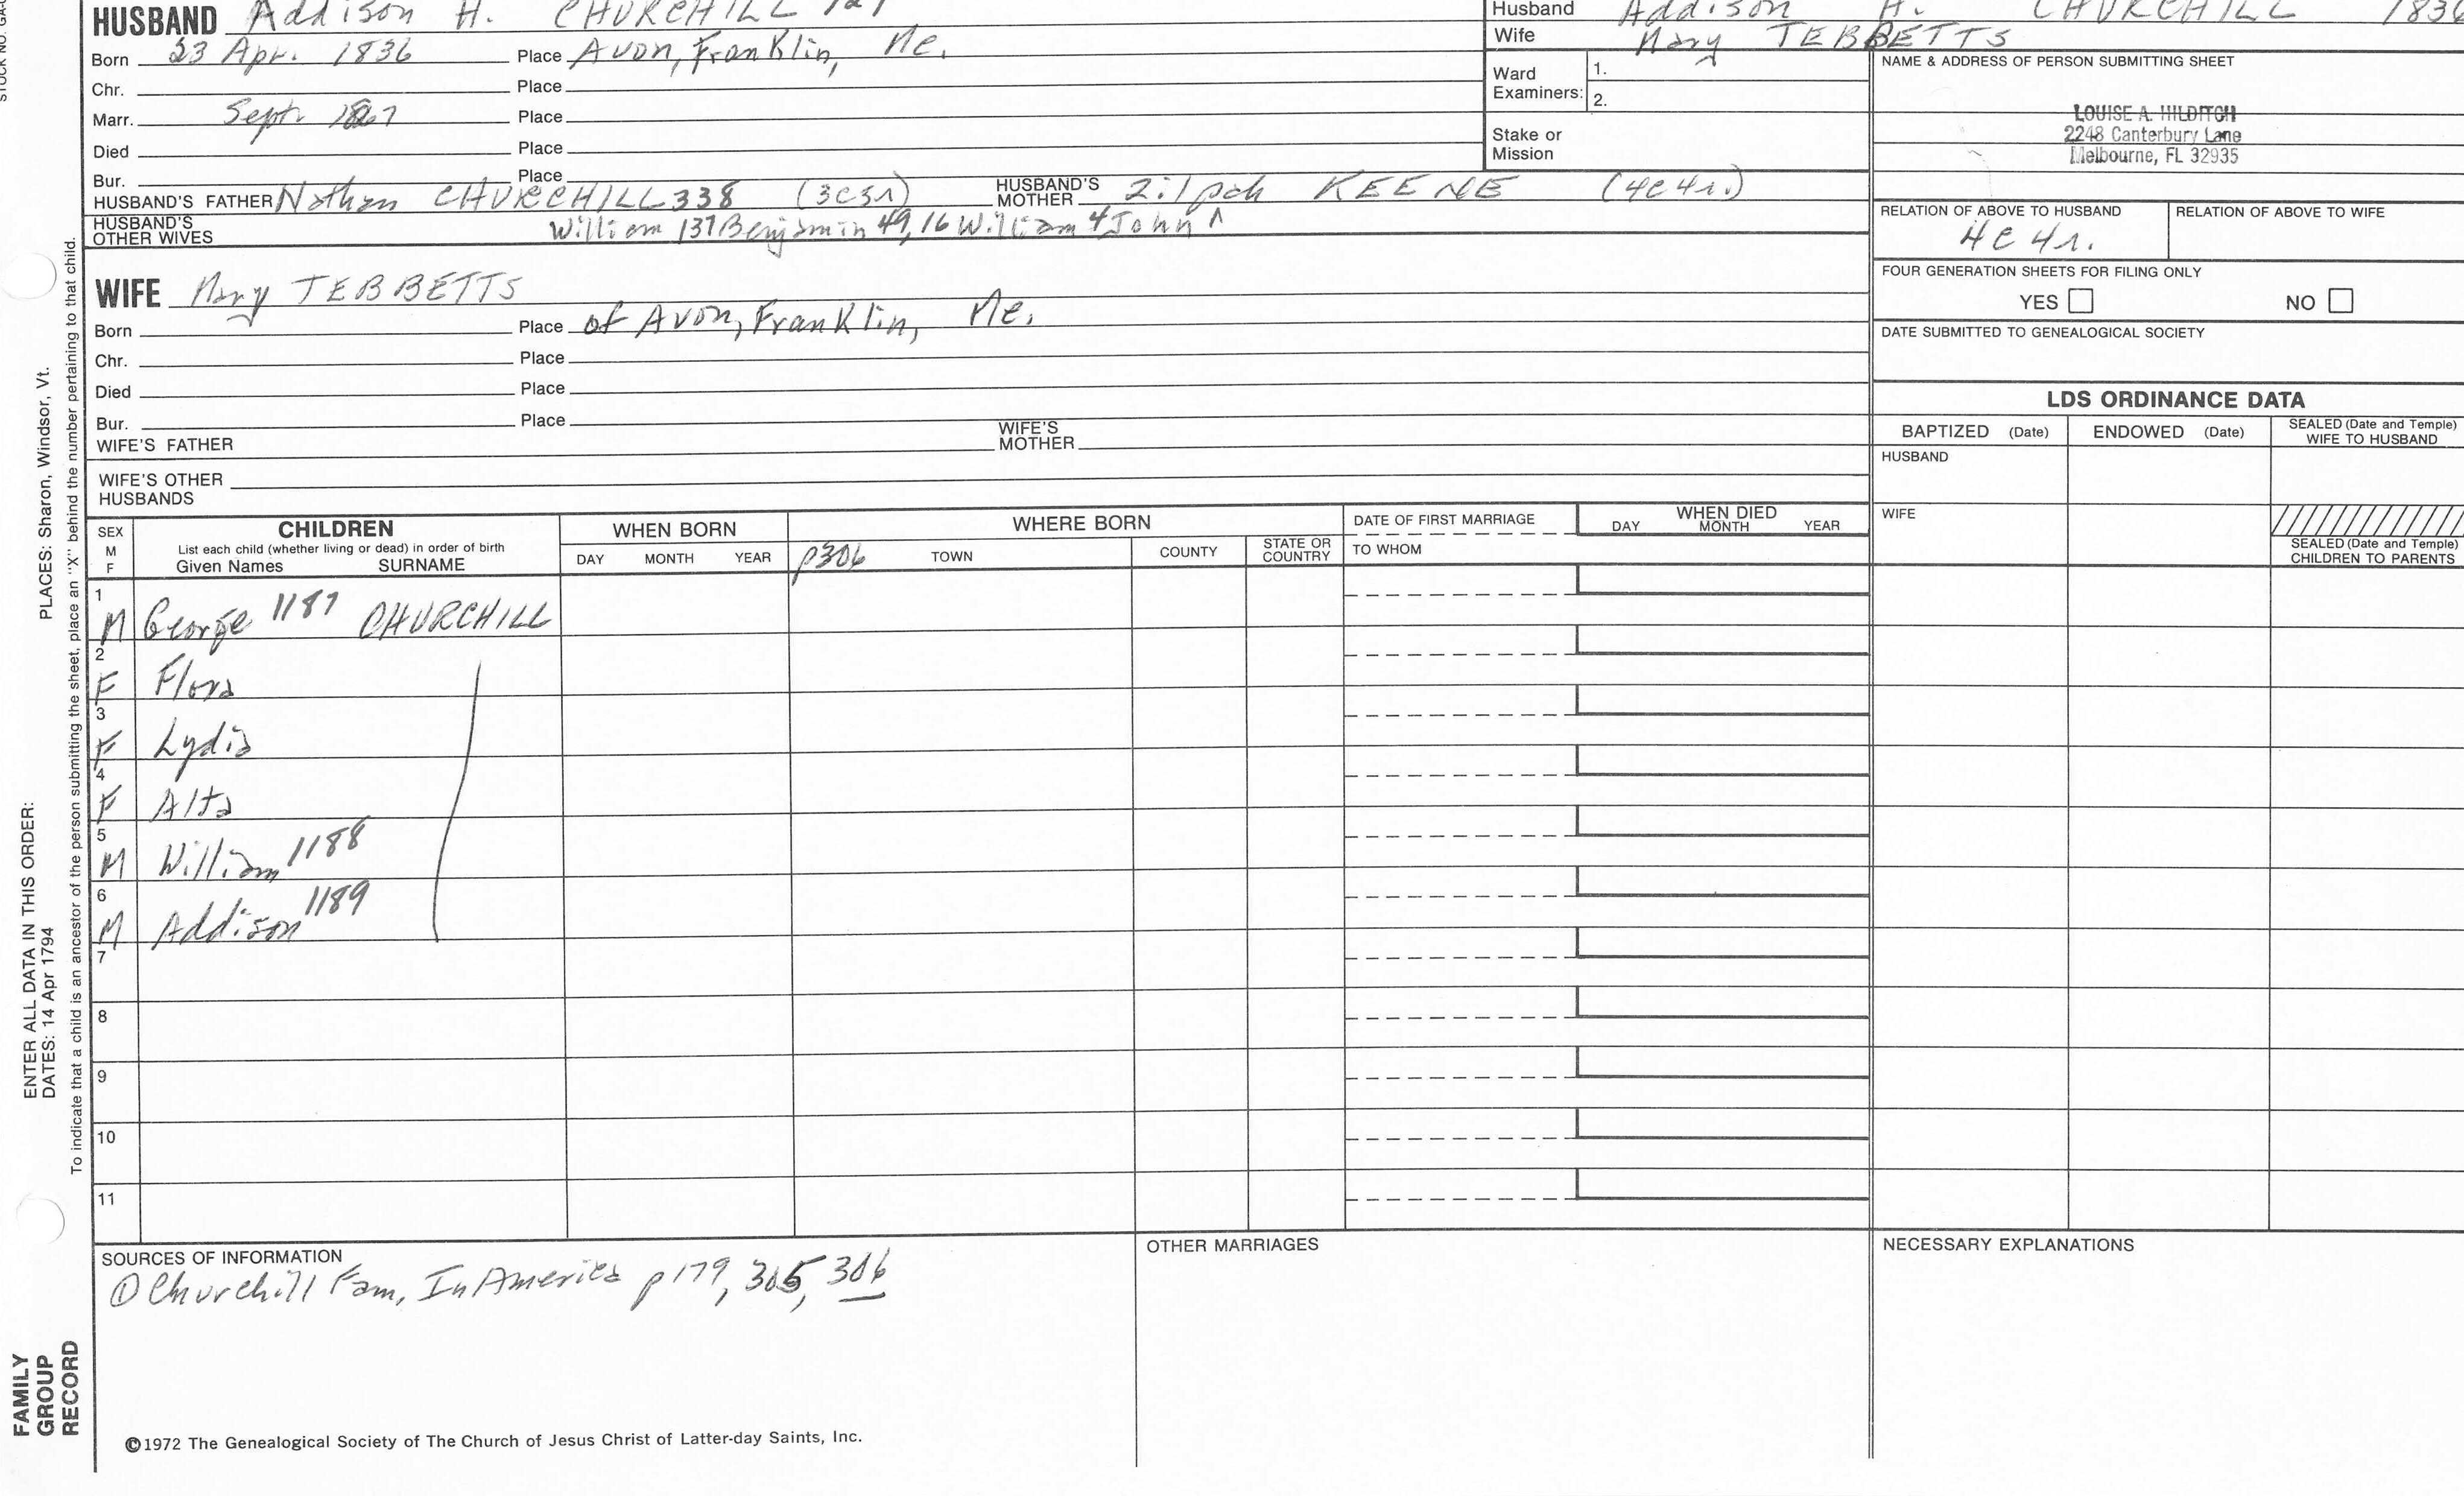 HUSBAND Addison H. CHURCHILL
Born 23 Apr. 1836 Place Avon, Franklin, Me.
Chr. Place
Marr. Sept. Place
Died Place
Bur. Place
HUSBAND'S FATHER Nathan CHURCHILL 338 (3c3r) HUSBAND'S MOTHER Zilpah KEENE (4c4r.)
HUSBAND'S OTHER WIVES William 137 Benjamin 49, 16 William 4 John 1
Husband Addison H. CHURCHILL 1836
Wife Mary TEBBETTS
Ward Examiners: 1.
2.
Stake or Mission
NAME & ADDRESS OF PERSON SUBMITTING SHEET
LOUISE A. HILDITCH
2248 Canterbury Lane
Melbourne, FL 32935
RELATION OF ABOVE TO HUSBAND RELATION OF ABOVE TO WIFE
4c4r.
FOUR GENERATION SHEETS FOR FILING ONLY
YES NO
DATE SUBMITTED TO GENEALOGICAL SOCIETY
WIFE Mary TEBBETTS
Born Place of Avon, Franklin, Me.
Chr. Place
Died Place
Bur. Place
WIFE'S FATHER WIFE'S MOTHER
WIFE'S OTHER HUSBANDS
LDS ORDINANCE DATA
BAPTIZED (Date) ENDOWED (Date) SEALED (Date and Temple) WIFE TO HUSBAND
HUSBAND
WIFE
SEALED (Date and Temple) CHILDREN TO PARENTS
SEX M F
CHILDREN
List each child (whether living or dead) in order of birth
Given Names SURNAME
WHEN BORN
DAY MONTH YEAR
WHERE BORN
p306 TOWN COUNTY STATE OR COUNTRY
DATE OF FIRST MARRIAGE
TO WHOM
WHEN DIED
DAY MONTH YEAR
1 M George 1187 CHURCHILL
2 F Flora
3 F Lydia
4 F Alta
5 M William 1188
6 M Addison 1189
7
8
9
10
11
SOURCES OF INFORMATION
① Churchill Fam, In America p179, 305, 306
OTHER MARRIAGES
NECESSARY EXPLANATIONS
©1972 The Genealogical Society of The Church of Jesus Christ of Latter-day Saints, Inc.
STOCK NO.
ENTER ALL DATA IN THIS ORDER:
DATES: 14 Apr 1794 PLACES: Sharon, Windsor, Vt.
To indicate that a child is an ancestor of the person submitting the sheet, place an "X" behind the number pertaining to that child.
FAMILY
GROUP
RECORD